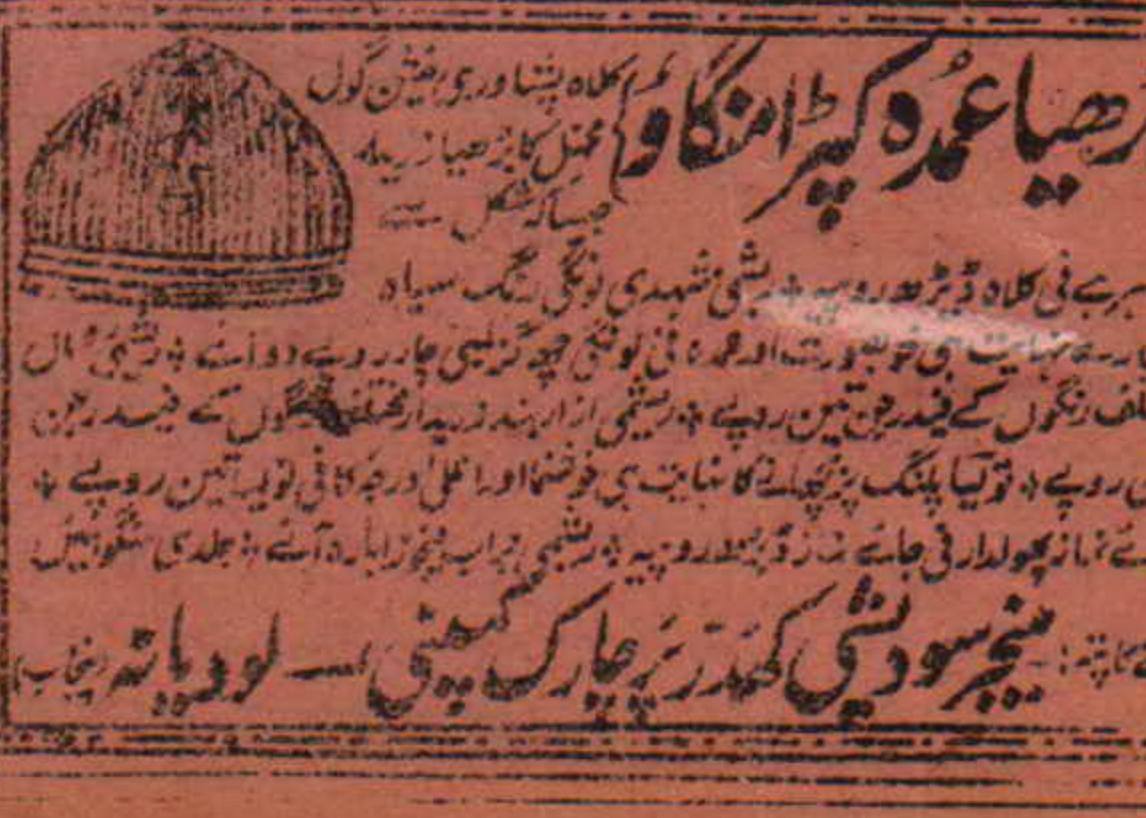 بڑھیا عمدہ کپڑا منگاؤ
کلاہ پشاوری بفیشن گول
مخمل کا بڑھیا زریدار
جیسا کہ شکل ہے
فی کلاہ ڈیڑھ روپیہ ٭ ریشمی مشہدی لونگی رنگ سیاہ
نہایت ہی خوبصورت اور عمدہ فی لونگی چھ گز لمبی چار روپے دو آنے ٭ ریشمی رومال
رنگوں کے فیدرجن تین روپے ٭ ریشمی ازاربند زریدار مختلف رنگوں کے فیدرجن
روپے ٭ تولیا پلنگ پر بچھانے کا نہایت ہی خوشنما اور اعلیٰ درجہ کا فی تولیہ تین روپے ٭
نماز پھولدار فی جائے نماز ڈیڑھ روپیہ ٭ ریشمی جراب فی جوڑا بارہ آنے ٭ جلدی منگوائیں
پتہ:- منیجر سودیشی کھدر پرچارک کمپنی ۔ لودیانہ (پنجاب)